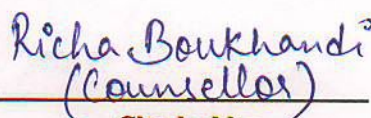 Richa Boukhandi
(Counsellor)